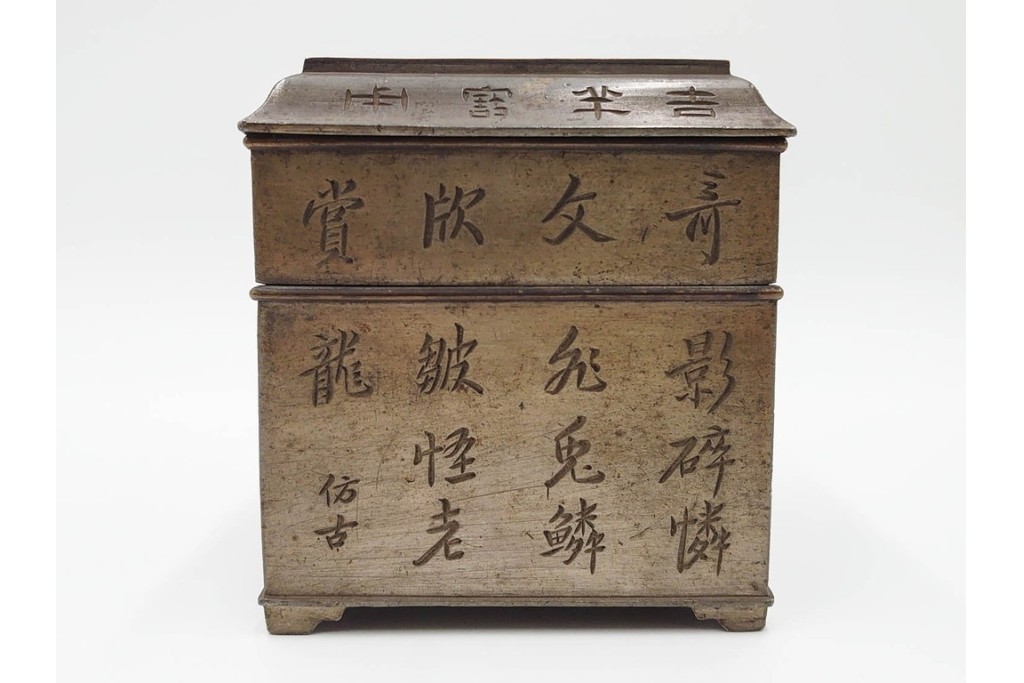 吉羊富
奇文欣賞
影碎憐
飛兔鱗
皺怪老
龍
仿古